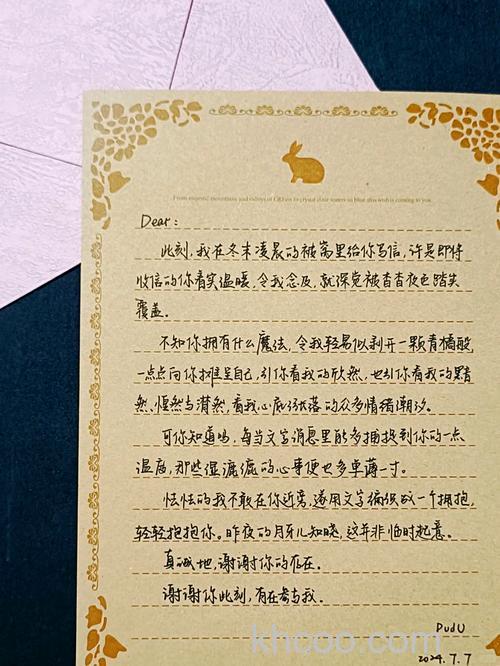 Dear:
此刻,我在冬末凌晨的被窝里给你写信,许是即将
收信的你着实温暖,令我念及,就深觉被杳杳夜色踏实
覆盖。
不知你拥有什么魔法,令我轻易似剥开一颗青橘般
一点点向你摊呈自己,引你看我的欣然,也引你看我的黯
然、怅然与潸然,看我心底涨落的众多情绪潮汐。
可你知道吗,每当文字消息里能多捕捉到你的一点
温度,那些湿漉漉的心事便也多单薄一寸。
怯怯的我不敢在你近旁,遂用文字编织成一个拥抱,
轻轻抱抱你。昨夜的月牙儿知晓,这并非临时起意。
真诚地,谢谢你的存在。
谢谢你此刻,有在参与我。
PudU
2024.7.7
khcoo.com